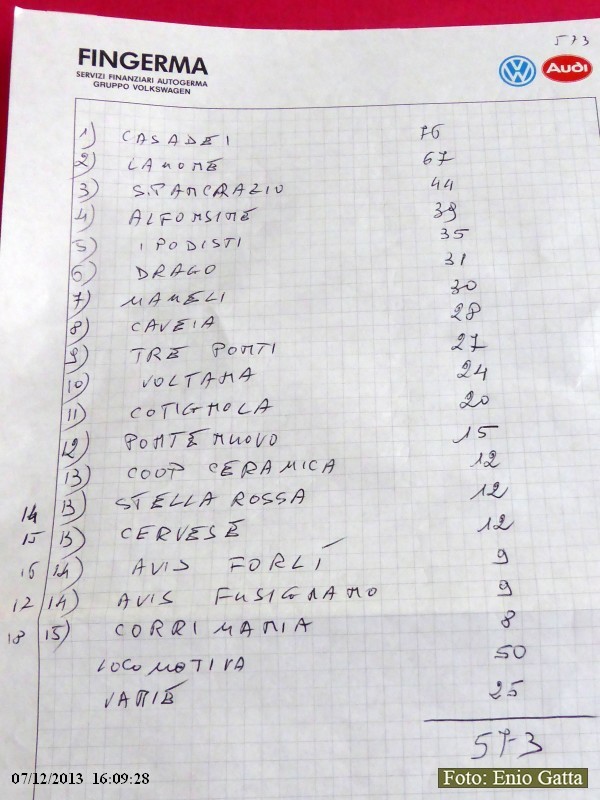 573
FINGERMA
SERVIZI FINANZIARI AUTOGERMA
GRUPPO VOLKSWAGEN
Audi
1) CASADEI 76
2) LAMONE 67
3) S.PANCRAZIO 44
4) ALFONSINE 39
5) I PODISTI 35
6) DRAGO 31
7) MAMELI 30
8) CAVEIA 28
9) TRE PONTI 27
10) VOLTANA 24
11) COTIGNOLA 20
12) PONTE NUOVO 15
13) COOP CERAMICA 12
14 13) STELLA ROSSA 12
15 13) CERVESE 12
16 14) AVIS FORLÌ 9
17 14) AVIS FUSIGNANO 9
18 15) CORRI MANIA 8
LOCOMOTIVA 50
VARIE 25
573
07/12/2013 16:09:28
Foto: Enio Gatta